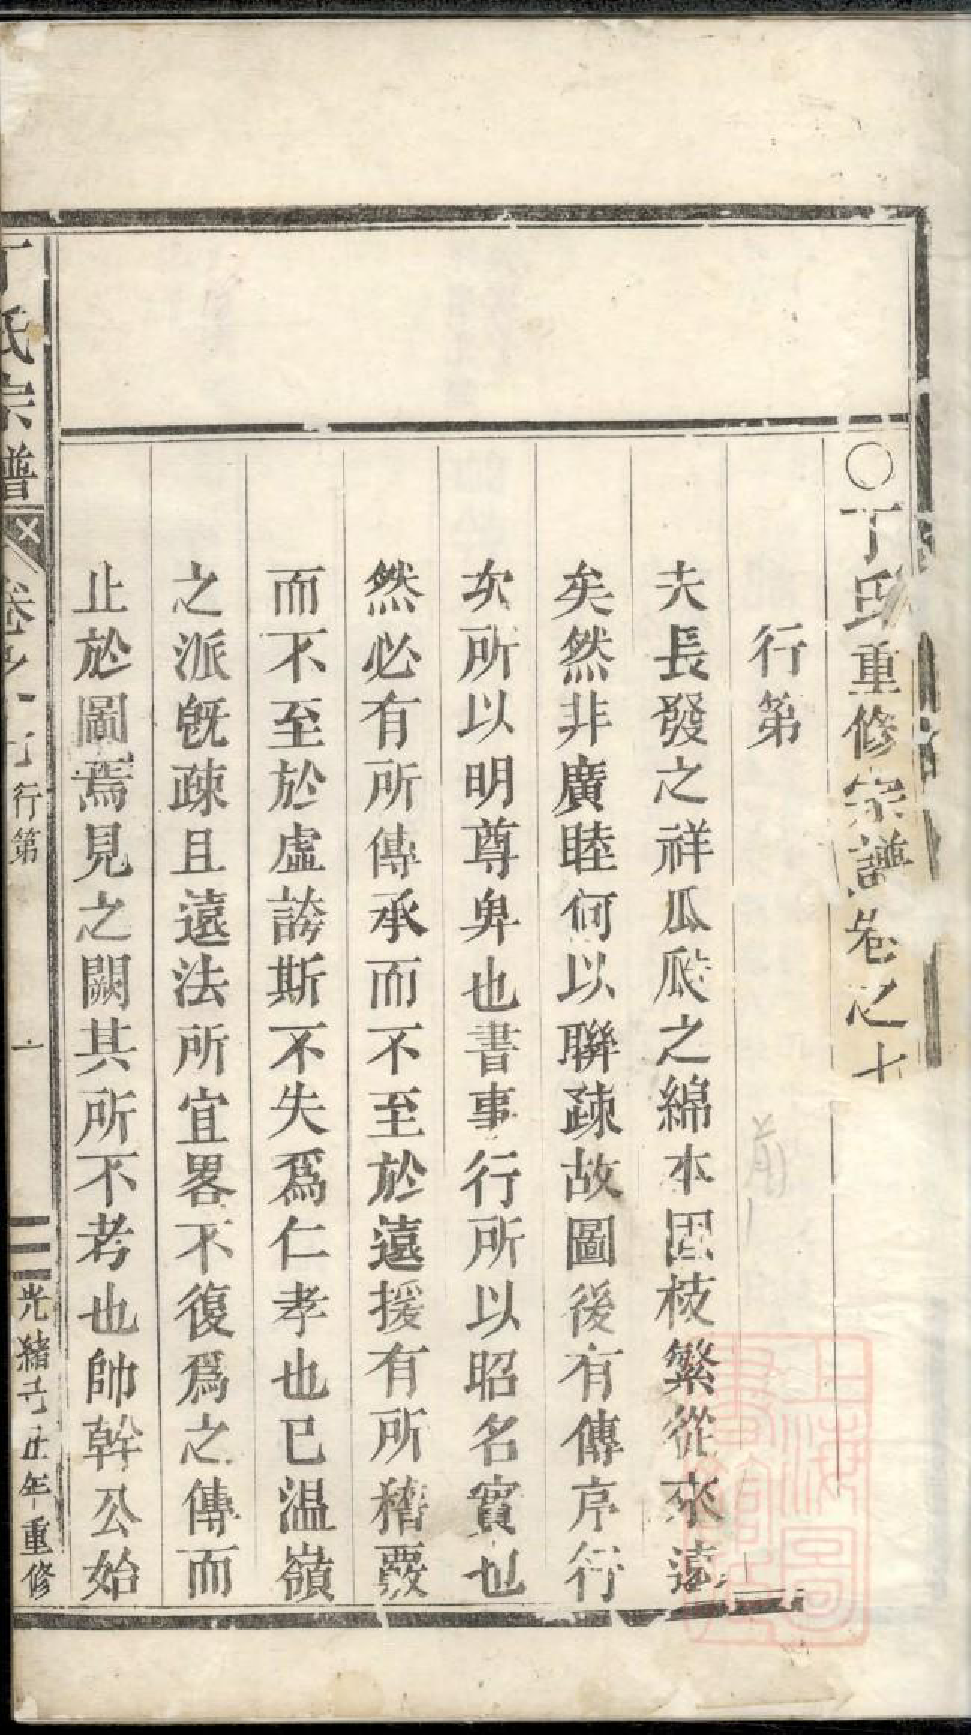 ○丁邱重修宗譜卷之七
行第
夫長發之祥瓜瓞之綿本固枝繁從來遠
矣然非廣睦何以聯疎故圖後有傳序行
次所以明尊卑也書事行所以昭名實也
然必有所傳承而不至於遠援有所稽覈
而不至於虛誇斯不失爲仁孝也已温嶺
之派旣疎且遠法所宜畧不復爲之傳而
止於圖焉見之闕其所不考也帥幹公始
丁氏宗譜 卷之 行第 一 光緒 年重修
上海圖書館藏